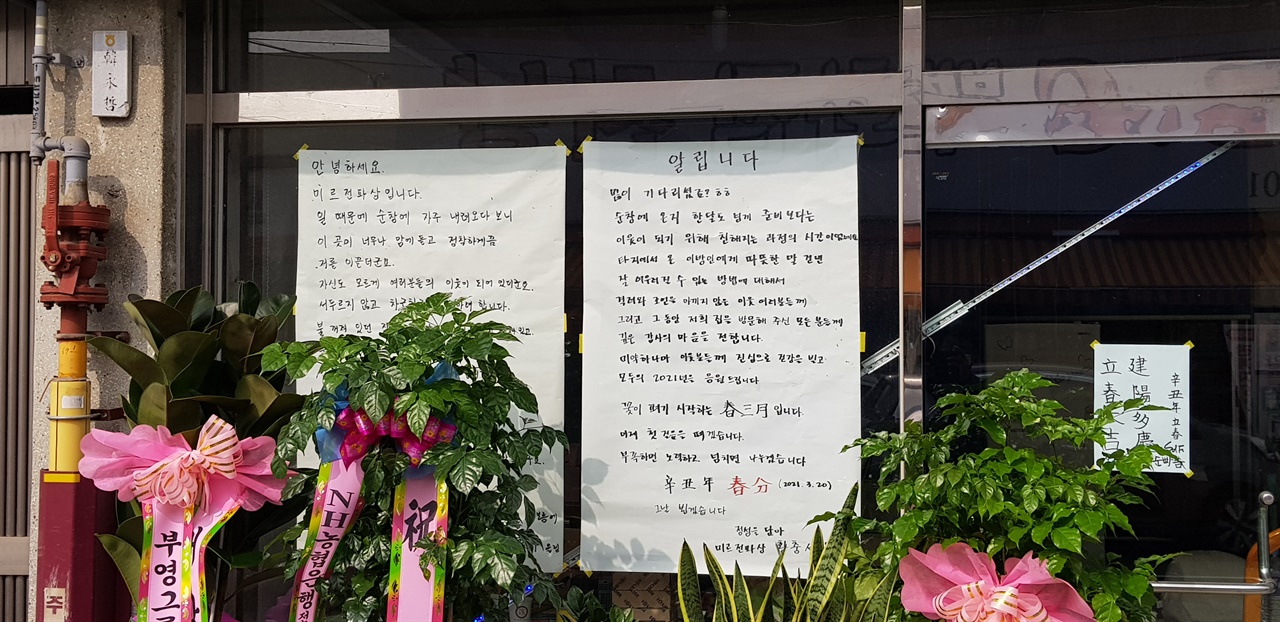 韓永哲
안녕하세요.
미르전파상입니다.
일 때문에 순창에 자주 내려오다 보니
이 곳이 너무나 맘에 들고 정착하게끔
저를 이끈더군요.
자신도 모르게 여러분들의 이웃이 되어 있더군요.
서두르지 않고
알립니다
많이 기다리셨죠? ㅎㅎ
순창에 온지 한달도 넘게 준비보다는
이웃이 되기 위해 친해지는 과정의 시간이었네요
타지에서 온 이방인에게 따뜻한 말 건넨
잘 어우러질 수 있는 방법에 대해서
격려와 조언을 아끼지 않는 이웃 여러분들께
그리고 그동안 저희 집을 방문해 주신 모든 분들께
깊은 감사의 마음을 전합니다.
미약하나마 이웃분들께 진심으로 건강을 빌고
모두의 2021년을 응원드립니다
꽃이 피기 시작하는 春三月입니다.
이제 첫 걸음을 떼겠습니다.
부족하면 노력하고 넘치면 나누겠습니다
辛丑年 春分 (2021.3.20)
그날 뵙겠습니다
정성을 담아
미르전파상
辛丑年立春
建陽多慶
立春大吉
부영그
NH농협은행
祝
주